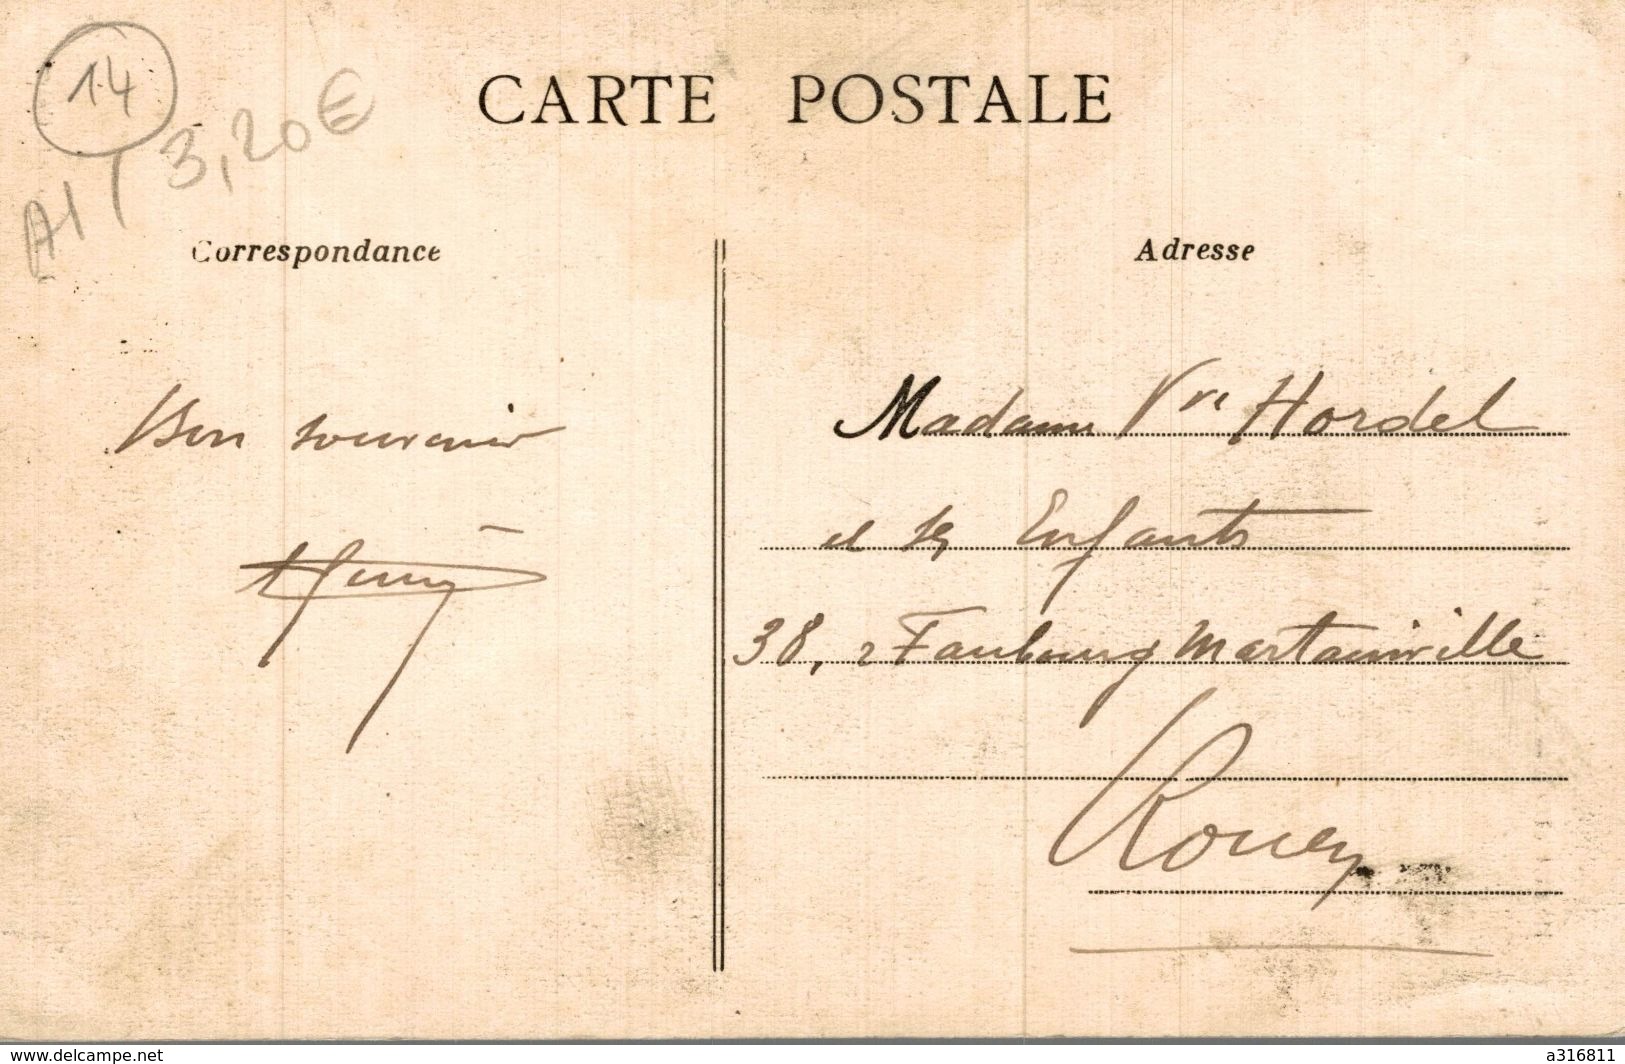 14
A1 / 3,20€
CARTE POSTALE
Correspondance
Bon souvenir
Adresse
Madame Vve Hordel
et ses Enfants
38, Faubourg Martainville
Rouen
www.delcampe.net
a316811